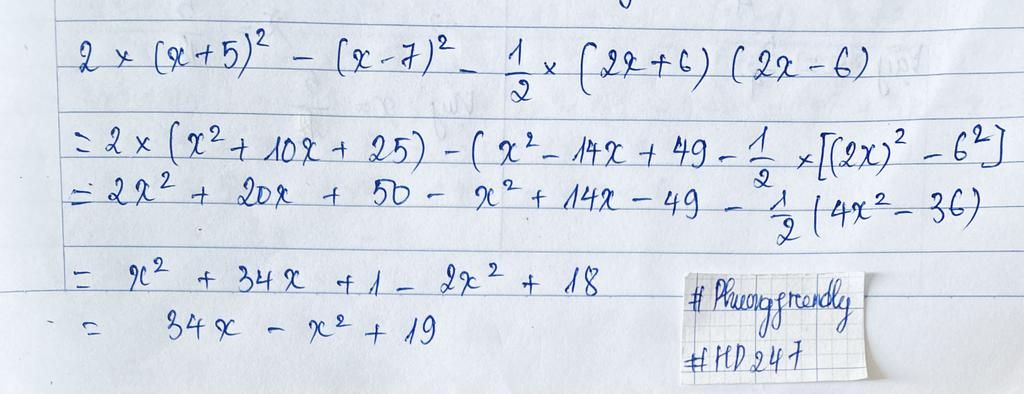 2 × (x+5)² − (x−7)² − 1/2 × (2x+6) (2x−6)
= 2 × (x² + 10x + 25) − (x² − 14x + 49 − 1/2 × [(2x)² − 6²]
= 2x² + 20x + 50 − x² + 14x − 49 − 1/2 (4x² − 36)
= x² + 34x + 1 − 2x² + 18
= 34x − x² + 19
# Phuonggreendly
# HD 247